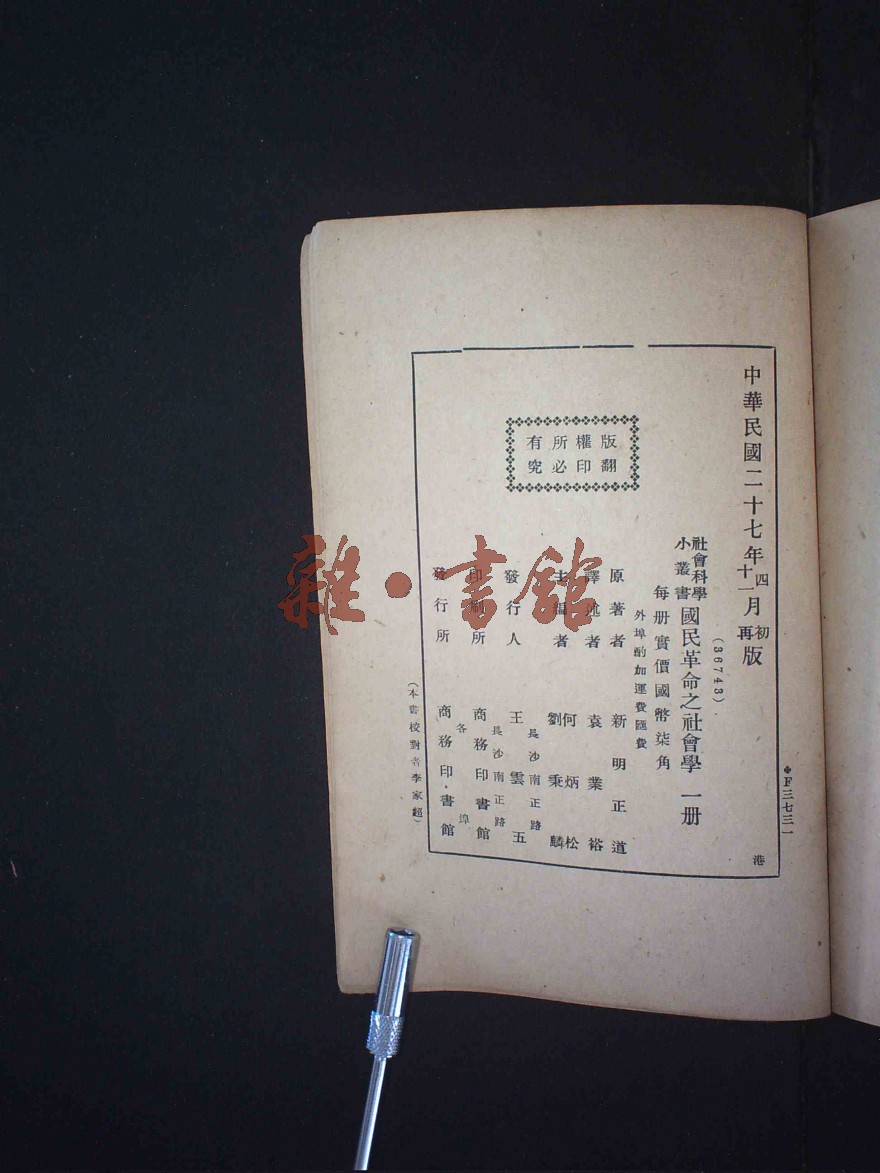 中華民國二十七年四月初版
十一月再版
(36743)
社會科學小叢書 國民革命之社會學 一册
每册實價國幣柒角
外埠酌加運費匯費
原著者 新明正道
譯述者 袁業裕
主編者 何炳松 劉秉麟
發行人 王雲五
長沙南正路
印刷所 商務印書館
長沙南正路
發行所 商務印書館
各埠
(本書校對者李家超)
版權所有
翻印必究
港
F三七三一
雜·書館